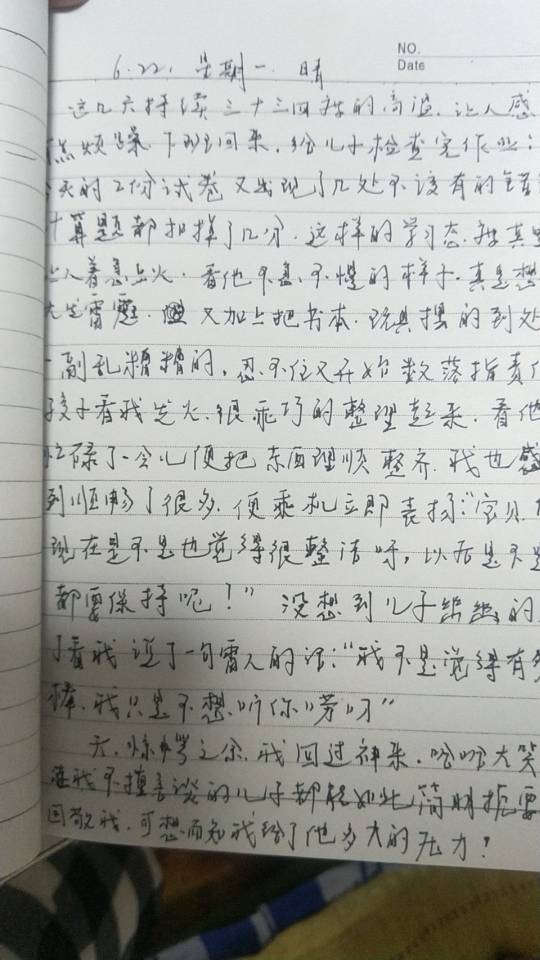 NO.
Date
6.22. 星期一. 晴
这几天持续三十三四度的高温. 让人感
点烦躁 下班回来. 给儿子检查完作业:
今天的2份试卷又出现了几处不该有的错
计算题都扣掉了几分. 这样的学习态度其
让人着急上火. 看他不急不慢的样子. 真是想
大发雷霆. 又加上把书本. 玩具摆的到处
一副乱糟糟的, 忍不住又开始数落指责
孩子看我发火. 很乖巧的整理起来. 看他
忙碌了一会儿便把东西理顺整齐. 我也感
到顺畅了很多. 便乘机立即表扬:"宝贝.
现在是不是也觉得很整洁呀, 以后是不是
都要保持呢！" 没想到儿子 的
了看我说了一句雷人的话:"我不是觉得有多
棒. 我只是不想听你"唠叨"
天. 惊愕之余. 我回过神来. 哈哈大笑
连我不擅言谈的儿子都能如此简明扼要
回敬我. 可想而知我给了他多大的压力？